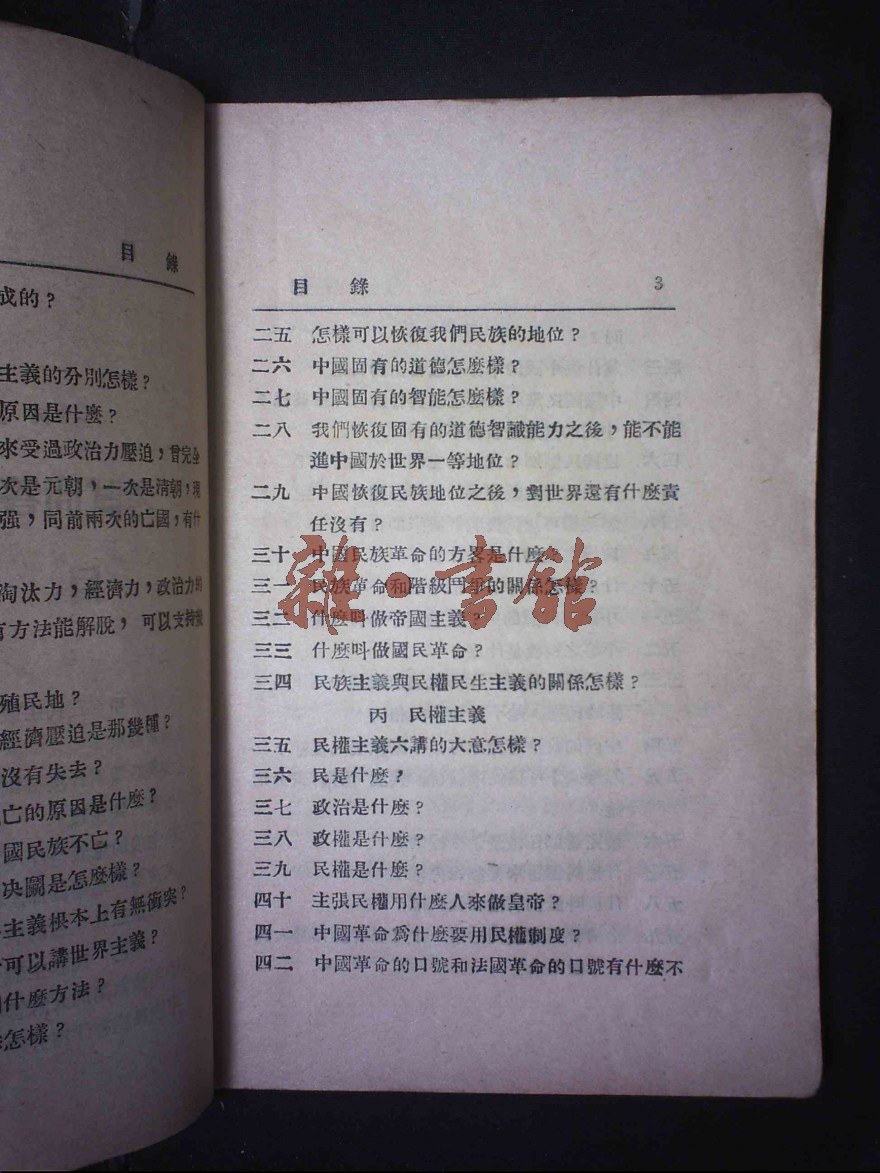 目錄
成的？
主義的分別怎樣？
原因是什麼？
來受過政治力壓迫，曾完全
次是元朝，一次是清朝，現
强，同前兩次的亡國，有什
淘汰力，經濟力，政治力的
有方法能解脫，可以支持幾
殖民地？
經濟壓迫是那幾種？
沒有失去？
亡的原因是什麼？
國民族不亡？
决鬭是怎麼樣？
主義根本上有無衝突？
可以講世界主義？
什麼方法？
怎樣？
目錄 3
二五 怎樣可以恢復我們民族的地位？
二六 中國固有的道德怎麼樣？
二七 中國固有的智能怎麼樣？
二八 我們恢復固有的道德智識能力之後，能不能
進中國於世界一等地位？
二九 中國恢復民族地位之後，對世界還有什麼責
任沒有？
三十 中國民族革命的方畧是什麼？
三一 民族革命和階級鬥爭的關係怎樣？
三二 什麼叫做帝國主義？
三三 什麼呌做國民革命？
三四 民族主義與民權民生主義的關係怎樣？
丙 民權主義
三五 民權主義六講的大意怎樣？
三六 民是什麼？
三七 政治是什麼？
三八 政權是什麼？
三九 民權是什麼？
四十 主張民權用什麼人來做皇帝？
四一 中國革命爲什麼要用民權制度？
四二 中國革命的口號和法國革命的口號有什麼不
雜·書館